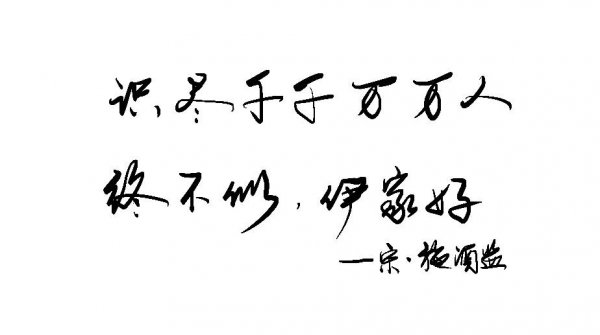 识尽千千万万人
终不似，伊家好
—宋·施酒监